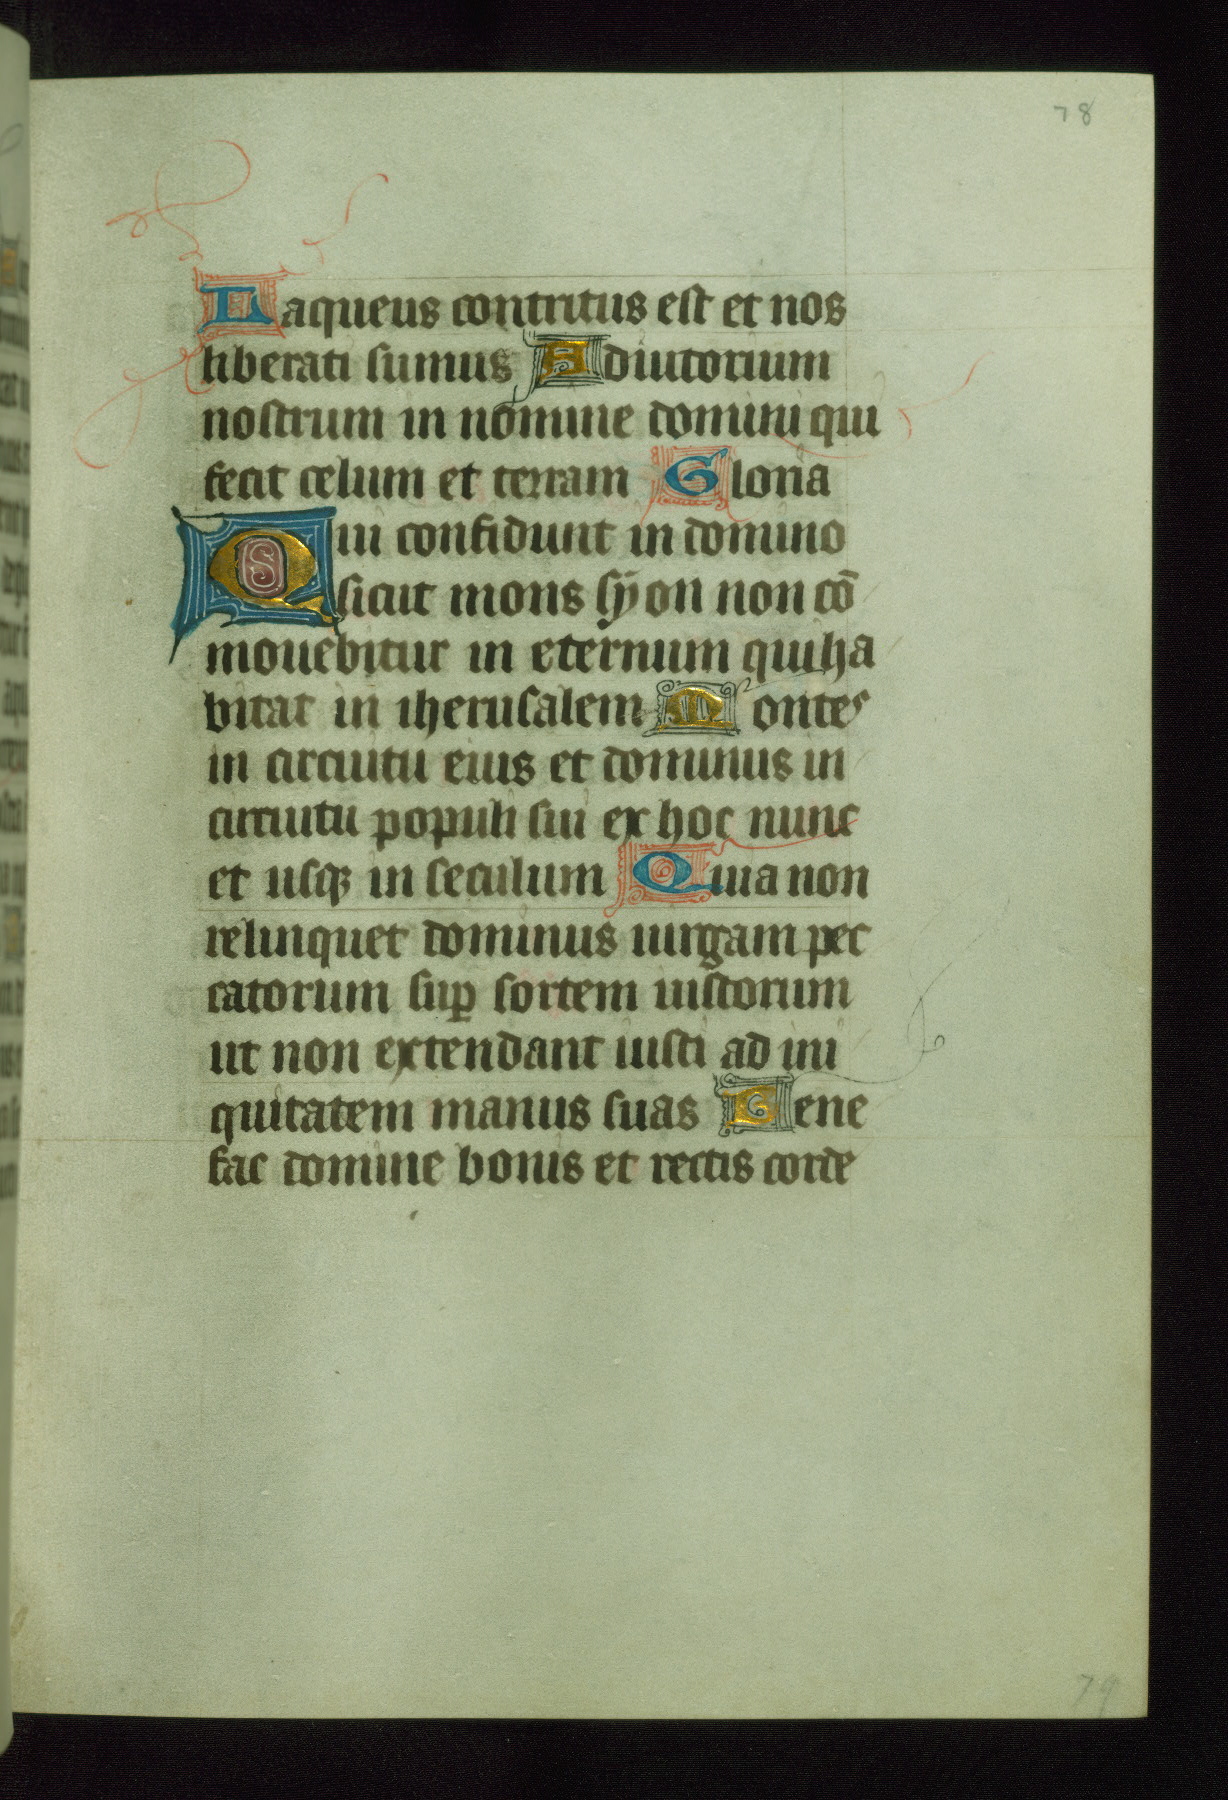 78
Laqueus contritus est et nos
liberati sumus Adiutorium
nostrum in nomine domini qui
fecit celum et terram Gloria
Qui confidunt in domino
sicut mons syon non cō
mouebitur in eternum qui ha
bitat in iherusalem Montes
in circuitu eius et dominus in
circuitu populi sui ex hoc nunc
et usqꝫ in seculum Quia non
relinquet dominus uirgam pec
catorum suꝑ sortem iustorum
ut non extendant iusti ad ini
quitatem manus suas Bene
fac domine bonis et rectis corde
79